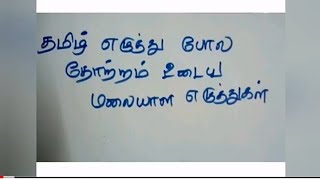 தமிழ் எழுத்து போல
தோற்றம் உடைய
மலையாள எழுத்துகள்